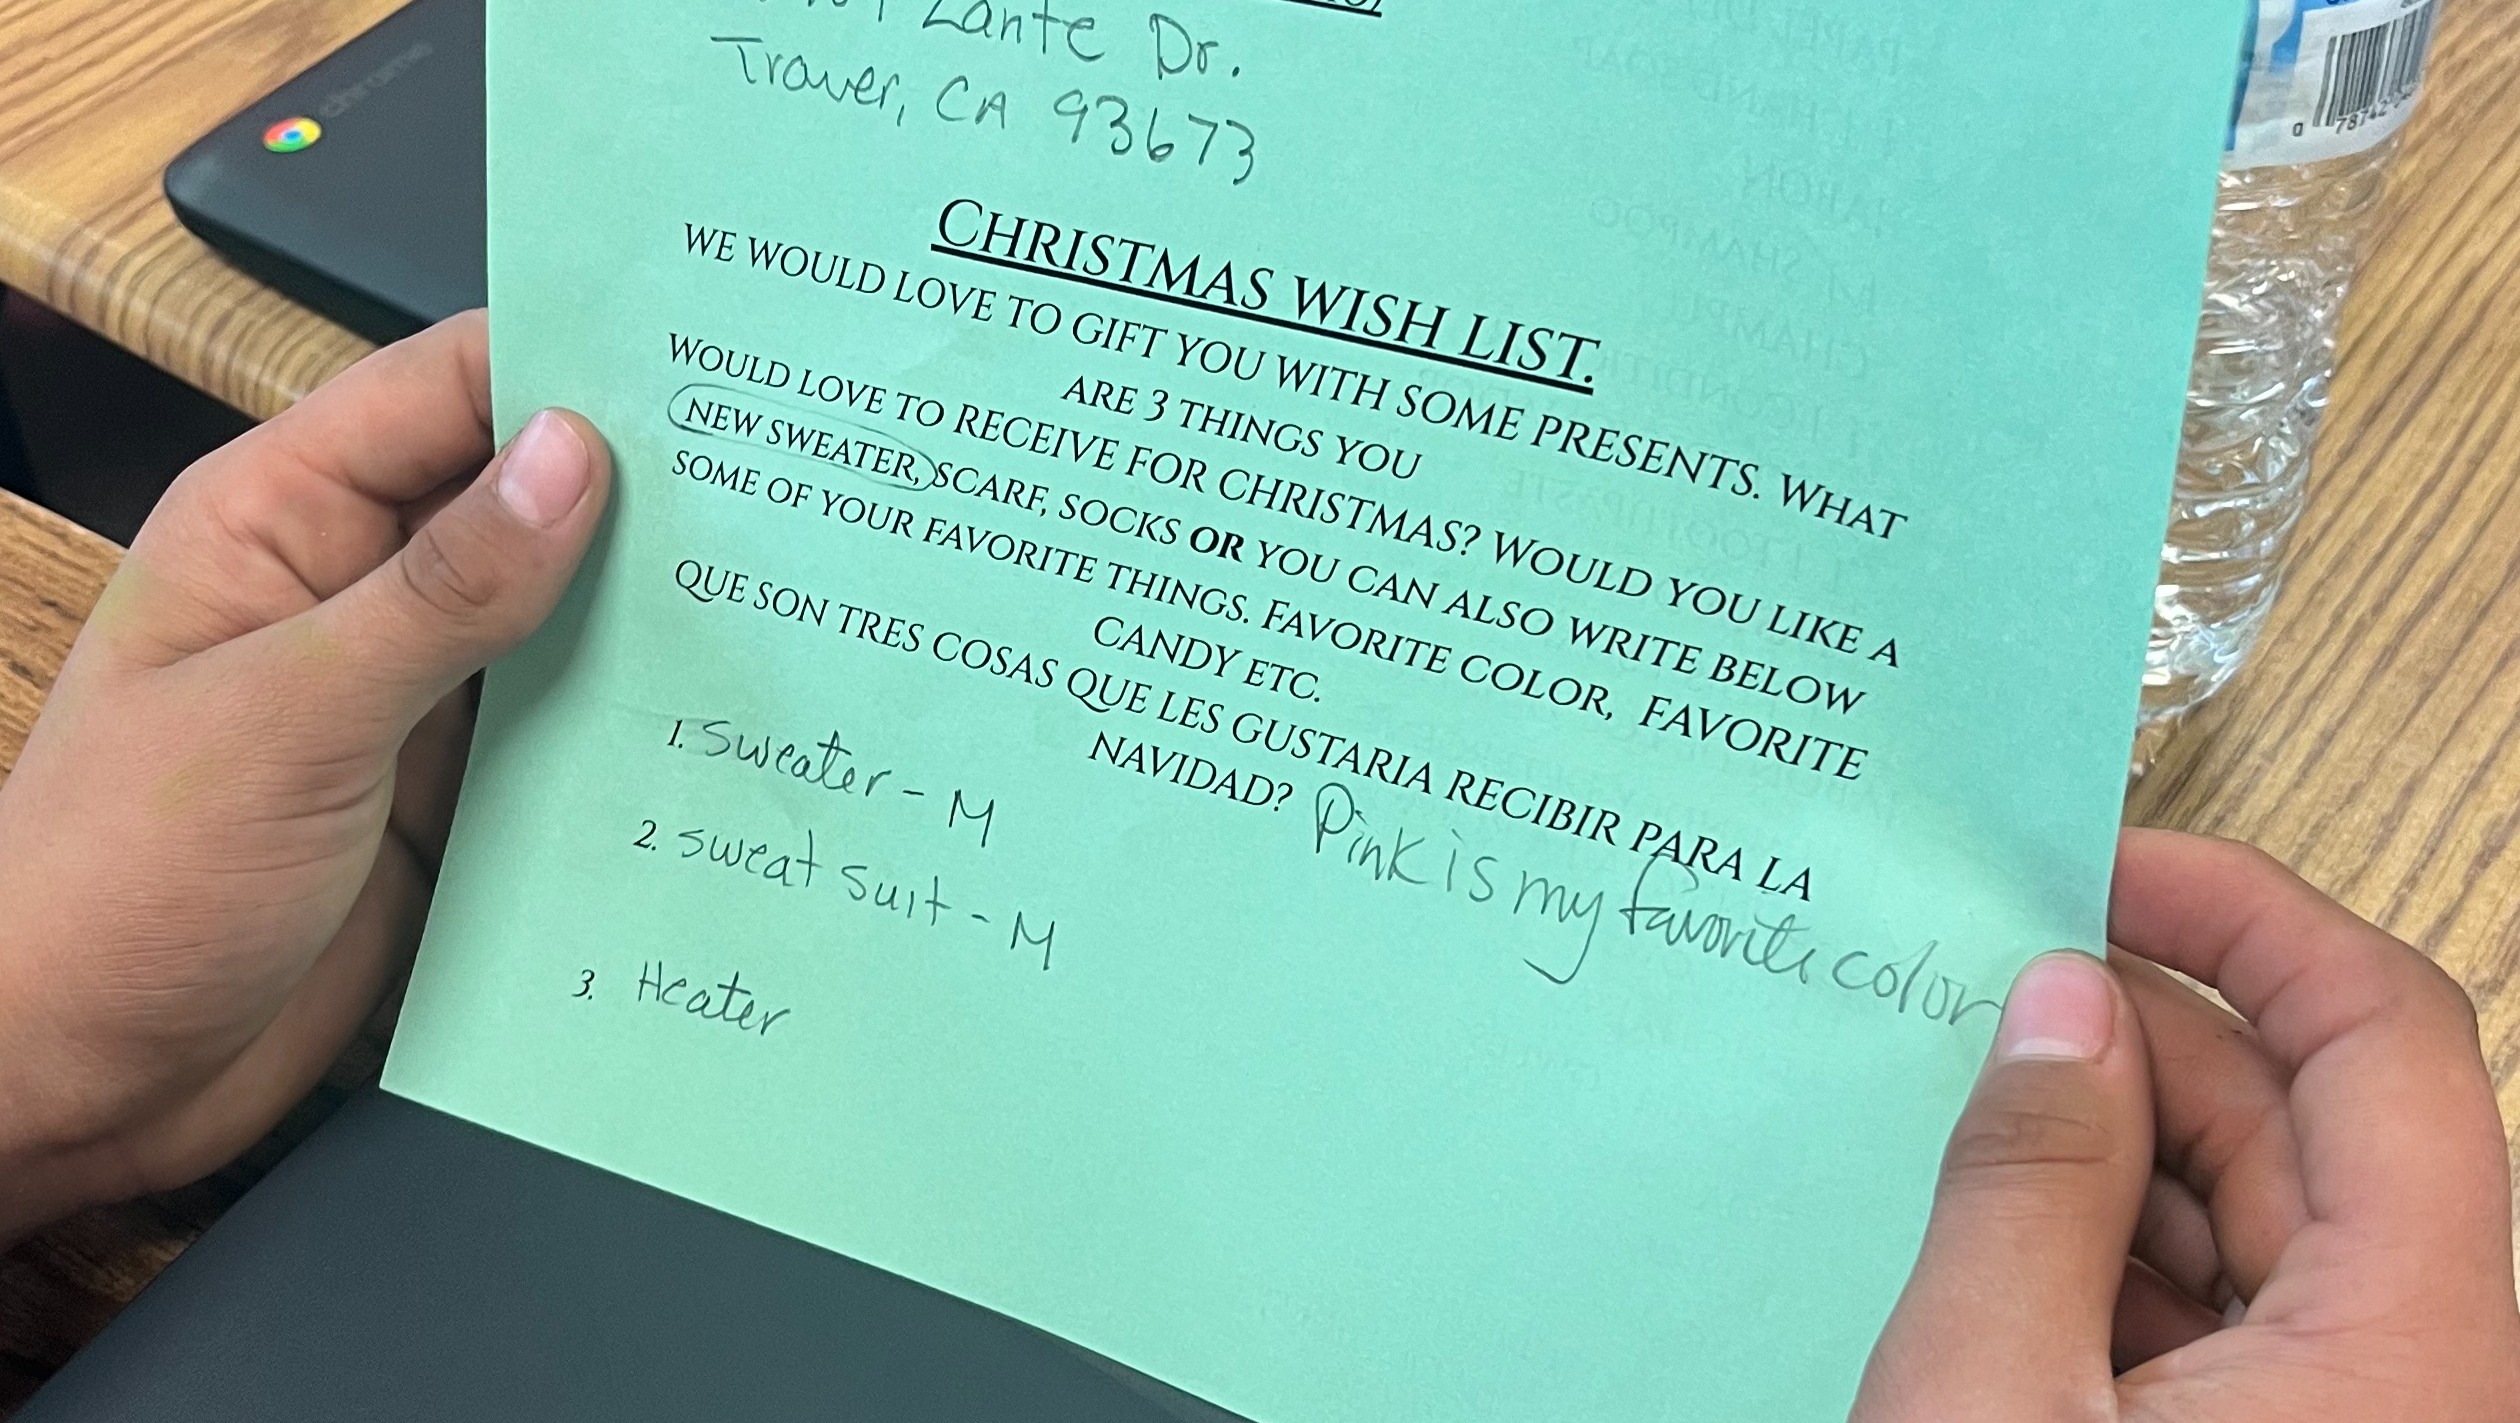 Zante Dr.
Traver, CA 93673
chrome
CHRISTMAS WISH LIST.
WE WOULD LOVE TO GIFT YOU WITH SOME PRESENTS. WHAT
ARE 3 THINGS YOU
WOULD LOVE TO RECEIVE FOR CHRISTMAS? WOULD YOU LIKE A
NEW SWEATER, SCARF, SOCKS OR YOU CAN ALSO WRITE BELOW
SOME OF YOUR FAVORITE THINGS. FAVORITE COLOR, FAVORITE
CANDY ETC.
QUE SON TRES COSAS QUE LES GUSTARIA RECIBIR PARA LA
NAVIDAD?
Pink is my favorite color
1. Sweater - M
2. sweat suit - M
3. Heater